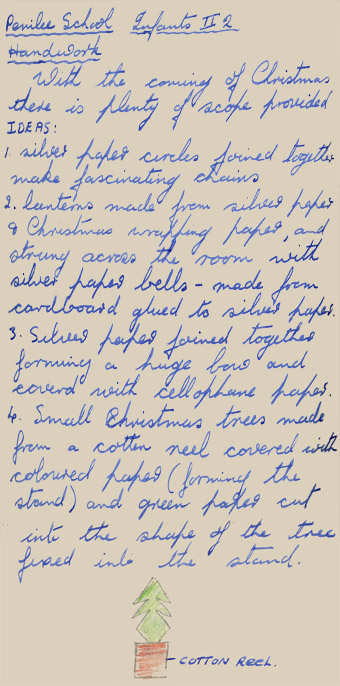 Penilee School Infants II 2
Handwork
With the coming of Christmas
there is plenty of scope provided
IDEAS:
1. silver paper circles joined together
make fascinating chains
2. lanterns made from silver paper
& Christmas wrapping paper, and
strung across the room with
silver paper bells - made from
cardboard glued to silver paper.
3. Silver paper joined together
forming a huge bow and
coverd with cellophane paper.
4. Small Christmas trees made
from a cotton reel covered with
coloured paper (forming the
stand) and green paper cut
into the shape of the tree
fixed into the stand.
COTTON REEL.